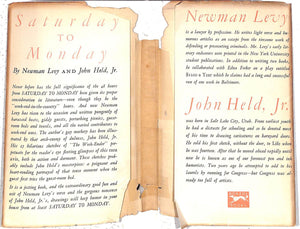 Saturday
TO
Monday
By Newman Levy AND John Held, Jr.
Never before has the full significance of the 48 hours
from SATURDAY TO MONDAY been given its proper
consideration in literature—even though they be the
"week-end in the country." And now Newman
Levy has risen to the occasion and written rhymes of
harassed hosts, giddy guests, perturbing parents, guest-
room beds and towels, and all the varied constituents to a
week-end party. The author's gay mockery has been illus-
trated by that arch-enemy of dullness, John Held, Jr.
His 25 hilarious sketches of "The Week-Ender" pen-
etrate for the reader's eye
both in action and dormant. These sketches graph-
ically include John Held's masterpiece: a poignant and
heart-rending portrayal of that tense moment when the
guest first tests the guest-room bed.
It is a jesting book, and the extraordinary good fun and
wit of Newman Levy's verse and the gorgeous nonsense
of John Held, Jr.'s, drawings still keep humor in your
house from at least SATURDAY TO MONDAY.
Newman Levy
is a lawyer by profession. He writes light verse and hu-
morous articles as an escape from the tiresome work of
defending or prosecuting criminals. Mr. Levy's early liter-
ary endeavors were printed in the New York University
student publications. In addition to writing books, he
has collaborated with Edna Ferber on a play entitled
$1200 A YEAR which he claims had a long and successful
run of one week in Baltimore.
John Held, Jr.
was born in Salt Lake City, Utah. From earliest youth
he had a distaste for schooling and so he devoted most
of his time to drawing cartoons on barnyard doors. He
sold his first sketch, without the door, to Life when
he was fourteen. After that he moved afield rapidly until
now he is known as one of our foremost pen and ink
humorists. Two years ago he attempted to add to his
laurels by running for Congress—but Congress was al-
ready too full of artists.